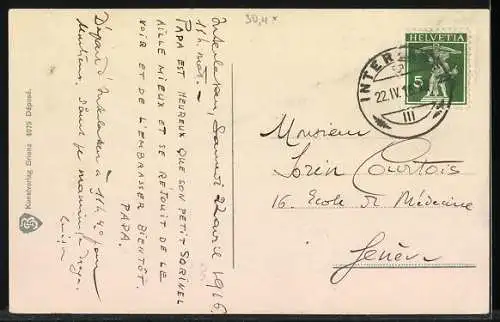 30,4x
Interlaken, Samedi 22 avril 1916
11h. mat. -
PAPA EST HEUREUX QUE SON PETIT SORINEL
AILLE MIEUX ET SE REJOUIT DE LE
VOIR ET DE L'EMBRASSER BIENTÔT.
PAPA.
Départ d'Interlaken à 11h 40 pour
Kunstverlag, Brienz 6075 Déposé.
HELVETIA
5
INTER
22.IV.1
III
Monsieur
Sorin Courtois
16. Ecole de Médecine
Genève